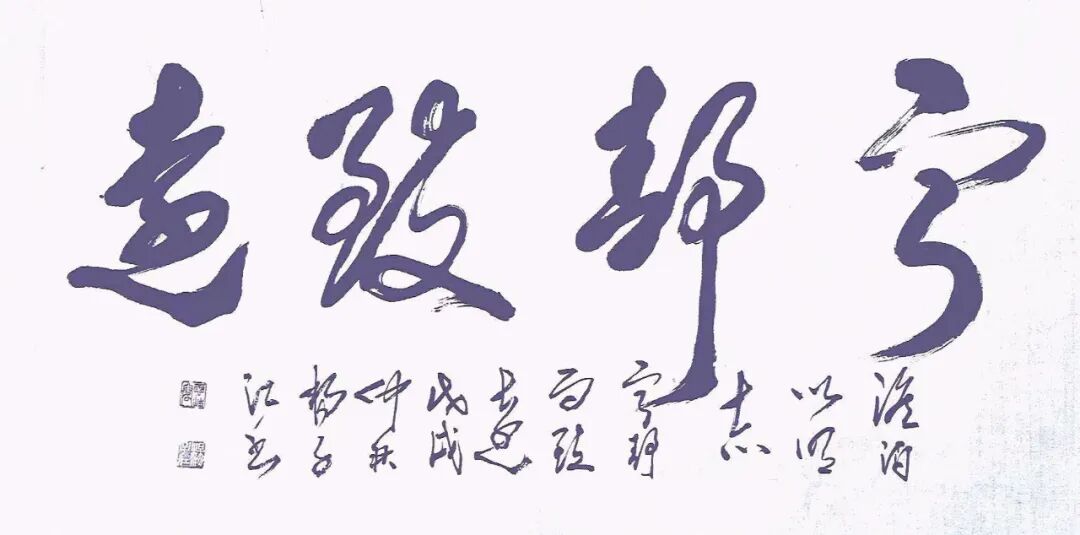 宁静致远
澹泊
以明
志
宁静
而致
远
戊戌
仲秋
杨子
江书